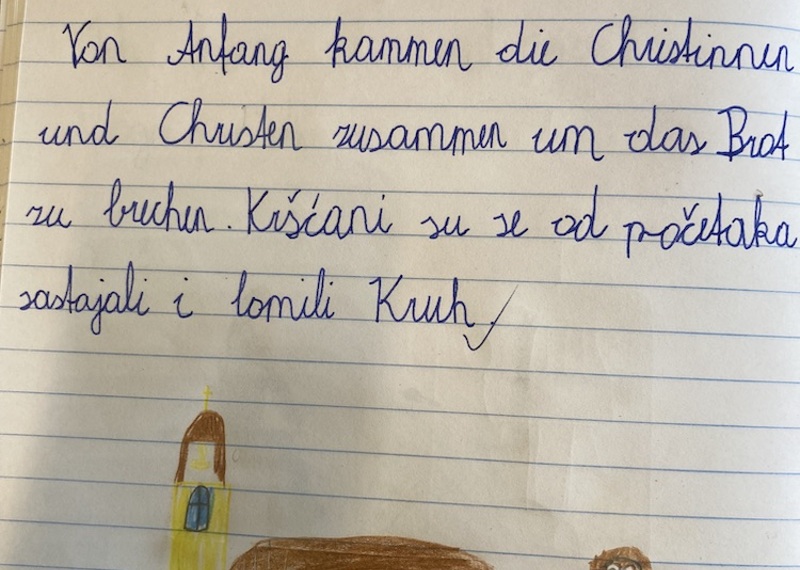 Von Anfang kammen die Christinnen
und Christen zusammen um das Brot
zu brechen. Kršćani su se od početaka
sastajali i lomili Kruh